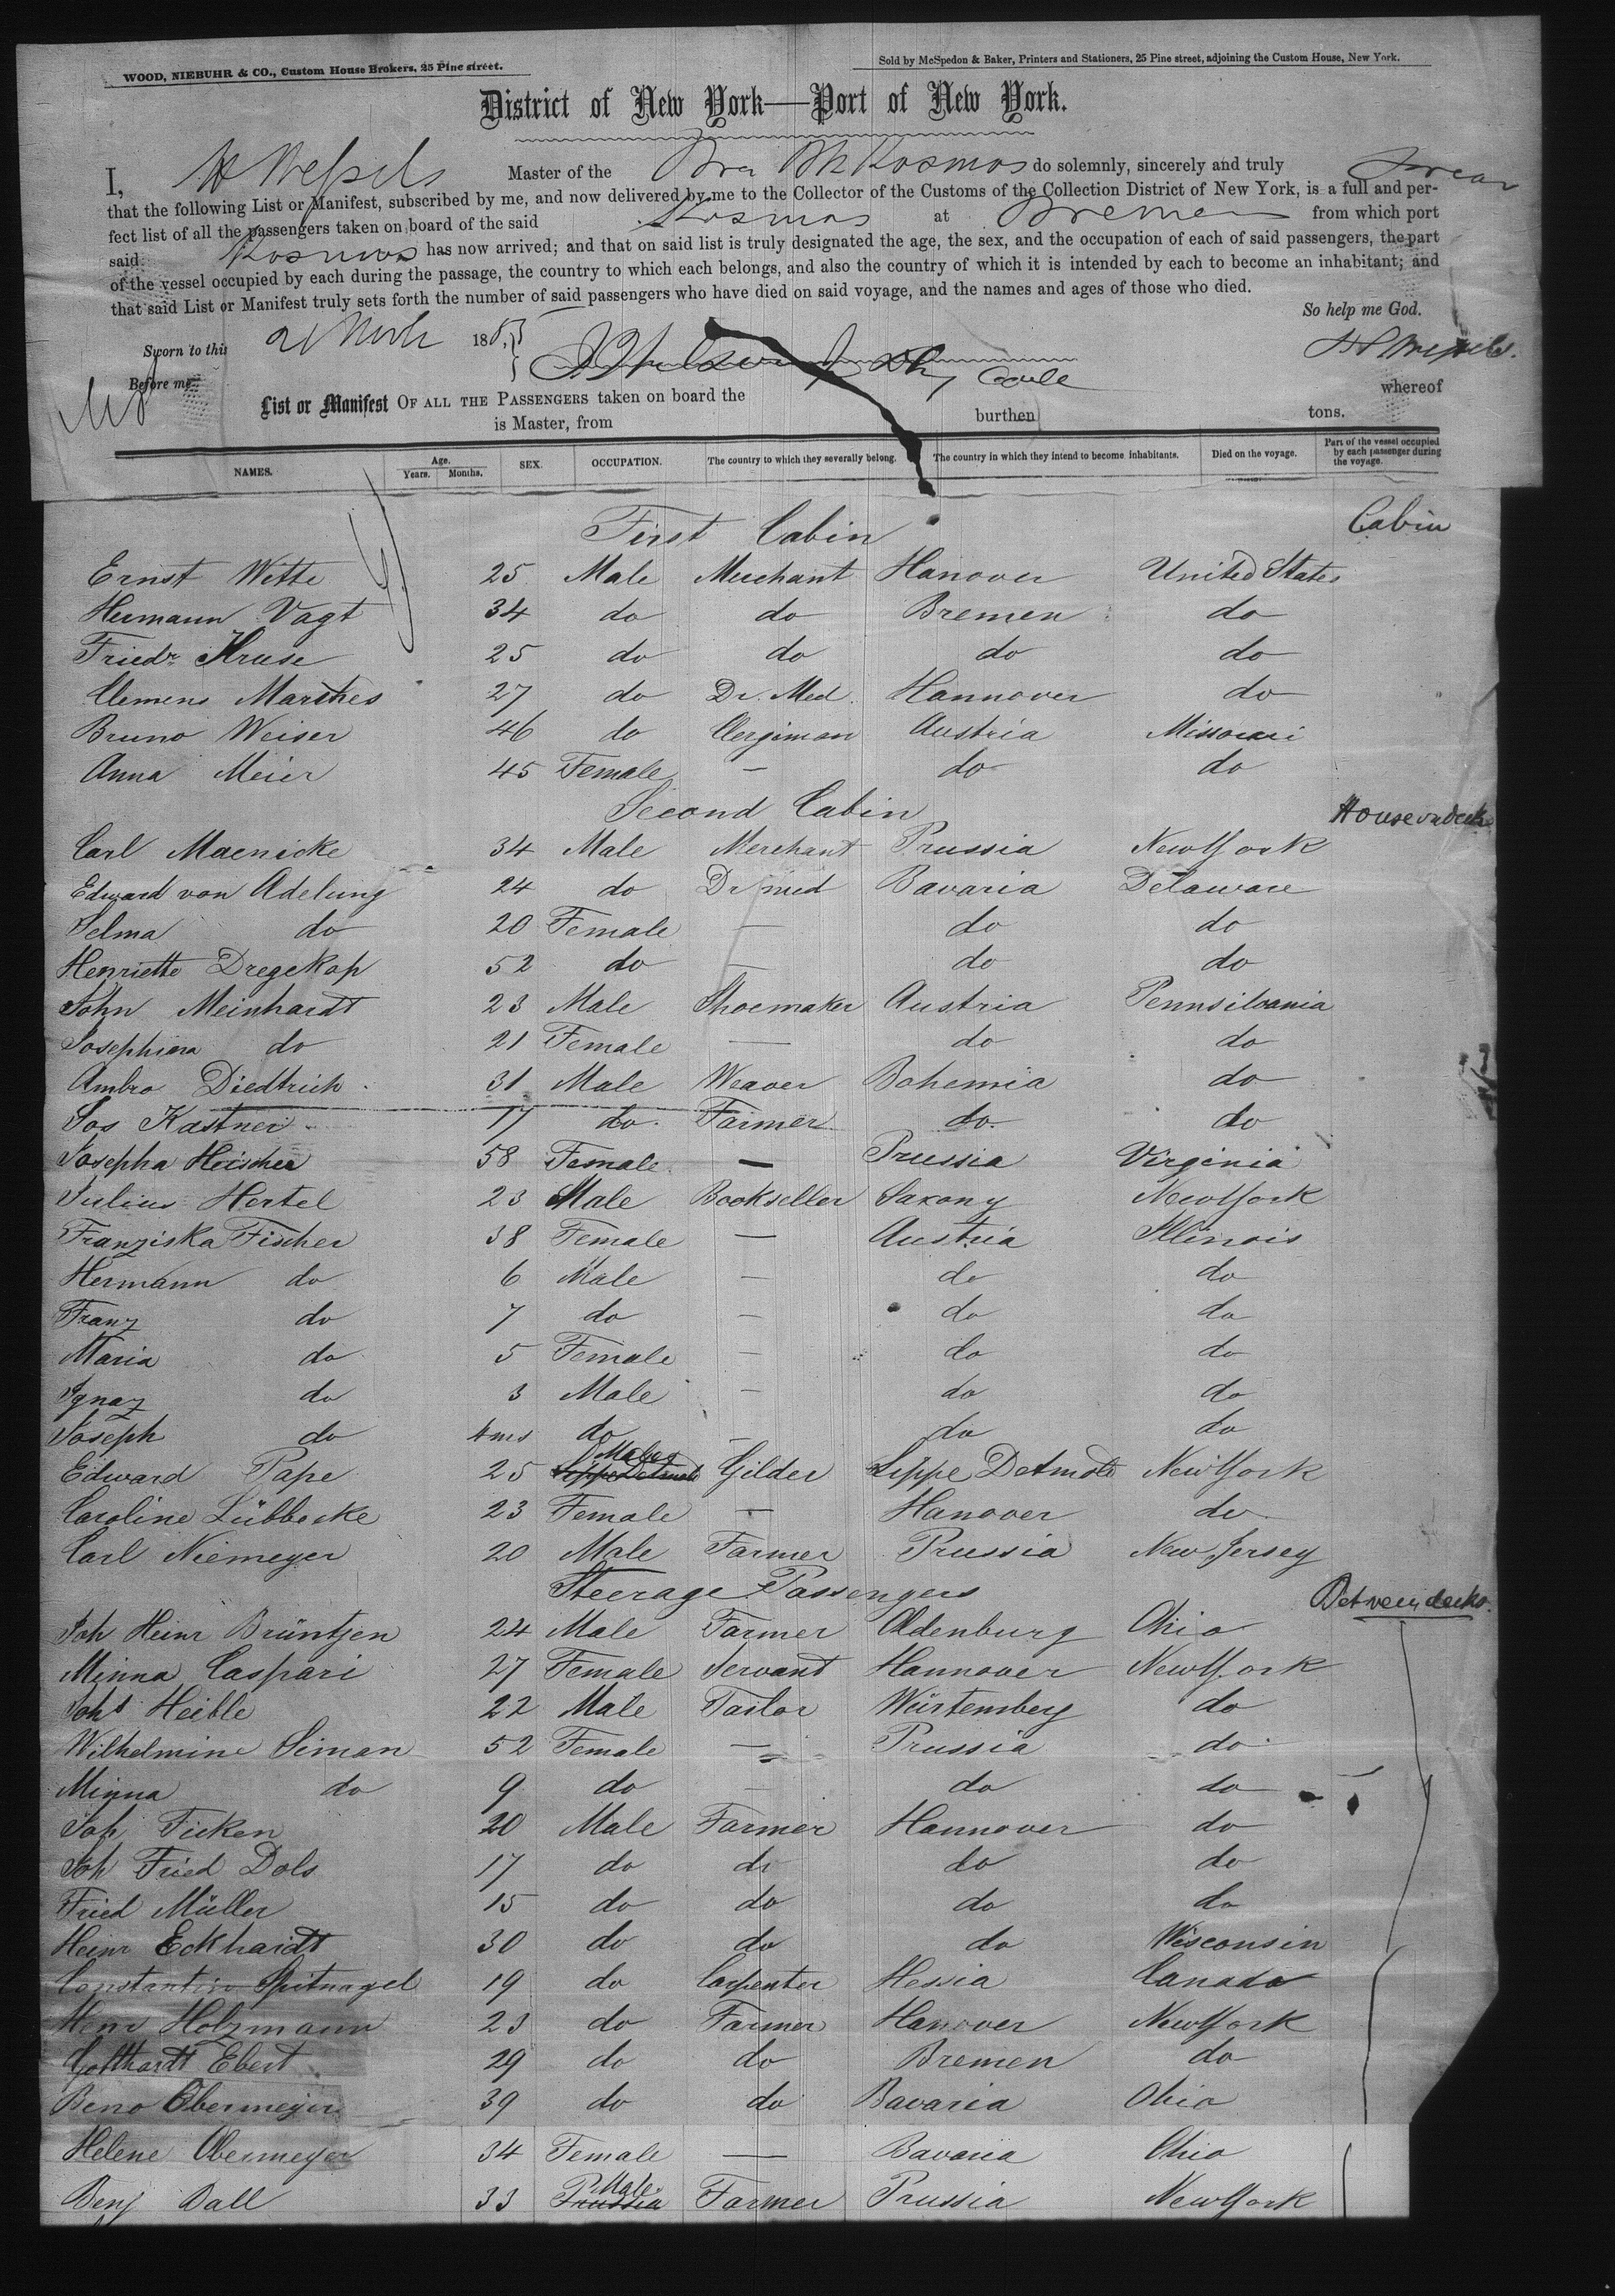 WOOD, NIEBUHR & CO., Custom House Brokers, 25 Pine street.
Sold by McSpedon & Baker, Printers and Stationers, 25 Pine street, adjoining the Custom House, New York.
District of New York—Port of New York.
I, H Wessels Master of the Bre Bk Kosmos do solemnly, sincerely and truly swear
that the following List or Manifest, subscribed by me, and now delivered by me to the Collector of the Customs of the Collection District of New York, is a full and per-
fect list of all the passengers taken on board of the said Kosmos at Bremen from which port
said Kosmos has now arrived; and that on said list is truly designated the age, the sex, and the occupation of each of said passengers, the part
of the vessel occupied by each during the passage, the country to which each belongs, and also the country of which it is intended by each to become an inhabitant; and
that said List or Manifest truly sets forth the number of said passengers who have died on said voyage, and the names and ages of those who died.
So help me God.
Sworn to this 21 185
H Wessels.
Before me
List or Manifest OF ALL THE PASSENGERS taken on board the whereof
is Master, from burthen tons.
NAMES. Age. Years. Months. SEX. OCCUPATION. The country to which they severally belong. The country in which they intend to become inhabitants. Died on the voyage. Part of the vessel occupied by each passenger during the voyage.
First Cabin Cabin
Ernst Witte 25 Male Merchant Hanover United States
Hermann Vagt 34 do do Bremen do
Friedr Kruse 25 do do do do
Clemens Marthes 27 do Dr. Med. Hannover do
Bruno Weiser 46 do Clergiman Austria Missouri
Anna Meier 45 Female — do do
Second Cabin House on deck
Carl Maenicke 34 Male Merchant Prussia New York
Edward von Adelung 24 do Dr med Bavaria Delaware
Selma do 20 Female — do do
Henriette Dregekop 52 do — do do
John Meinhardt 23 Male Shoemaker Austria Pennsilvania
Josephina do 21 Female — do do
Ambro Diedtrich 31 Male Weaver Bohemia do
Jos Kastner 17 do Farmer do do
Josepha Heischer 58 Female — Prussia Virginia
Julius Hertel 23 Male Bookseller Saxony New York
Franziska Fischer 38 Female — Austria Illinois
Hermann do 6 Male — do do
Franz do 7 do — do do
Maria do 5 Female — do do
Ignaz do 3 Male — do do
Joseph do 4 ms do — do do
Edward Pape 25 Lippe Detmold Male Gilder Lippe Detmold New York
Caroline Lübbecke 23 Female — Hanover do
Carl Niemeyer 20 Male Farmer Prussia New Jersey
Steerage Passengers Between decks
Joh Heinr Brüntjen 24 Male Farmer Oldenburg Ohio
Minna Caspari 27 Female Servant Hannover New York
Joht Heible 22 Male Tailor Würtemberg do
Wilhelmine Siman 52 Female — Prussia do
Minna do 9 do — do do
Joh Ficken 20 Male Farmer Hannover do
Joh Fried Dols 17 do do do do
Fried Müller 15 do do do do
Heinr Eckhardt 30 do do do Wisconsin
Constantin Spitnagel 19 do Carpenter Hessia Canada
Henr Holzmann 23 do Farmer Hanover New York
Gotthardt Ebert 29 do do Bremen do
Beno Obermeyer 39 do do Bavaria Ohio
Helene Obermeyer 34 Female — Bavaria Ohio
Benj Dall 33 Prussia Male Farmer Prussia New York